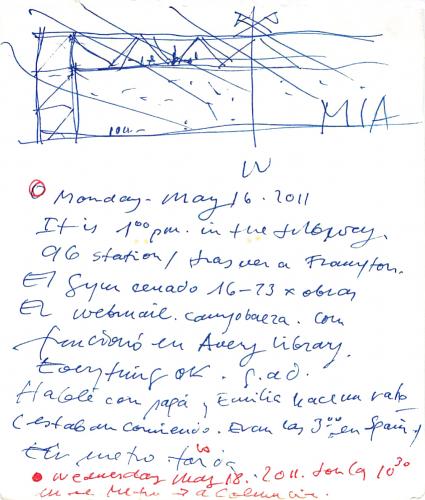 MIA
10м-
W
Monday. May 16. 2011
It is 1⁰⁰ pm. in the subway.
96 station / tras ver a Frampton.
El Gym cerrado 16-23 x obras
El webmail. campobaeza. com
funcionó en Avery Library.
Everything OK. g. a d.
Hablé con papá y Emilia hace un rato
(estaban comiendo. Eran las 3⁰⁰ en Spain.)
metro
Wednesday May 18. 2011. son las 10³⁰
en el Metro → a Columbia.